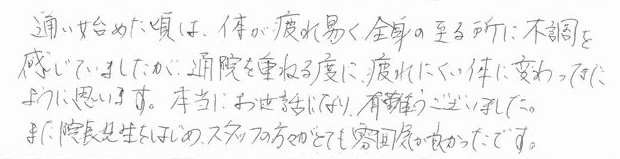 通い始めた頃は、体が疲れ易く、全身の至る所に不調を
感じていましたが、通院を重ねる度に、疲れにくい体に変わってきた
ように思います。本当にお世話になり、有難うございました。
また、院長先生をはじめ、スタッフの方々がとても雰囲気が良かったです。